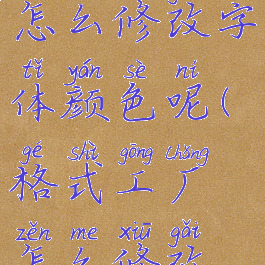 怎么修改字
tǐ yán sè ni
体颜色呢(
gé shì gōng chǎng
格式工厂
zěn me xiū gǎi
怎么修改